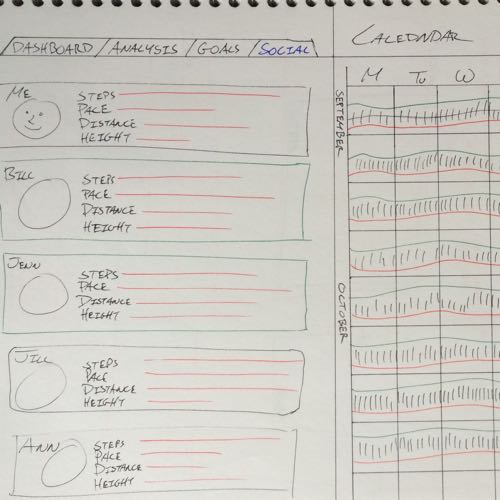 DASHBOARD / ANALYSIS / GOALS / SOCIAL
ME
STEPS
PACE
DISTANCE
HEIGHT
BILL
STEPS
PACE
DISTANCE
HEIGHT
JENN
STEPS
PACE
DISTANCE
HEIGHT
JILL
STEPS
PACE
DISTANCE
HEIGHT
ANN
STEPS
PACE
DISTANCE
HEIGHT
CALEDNDAR
M TU W
SEPTEMBER
OCTOBER